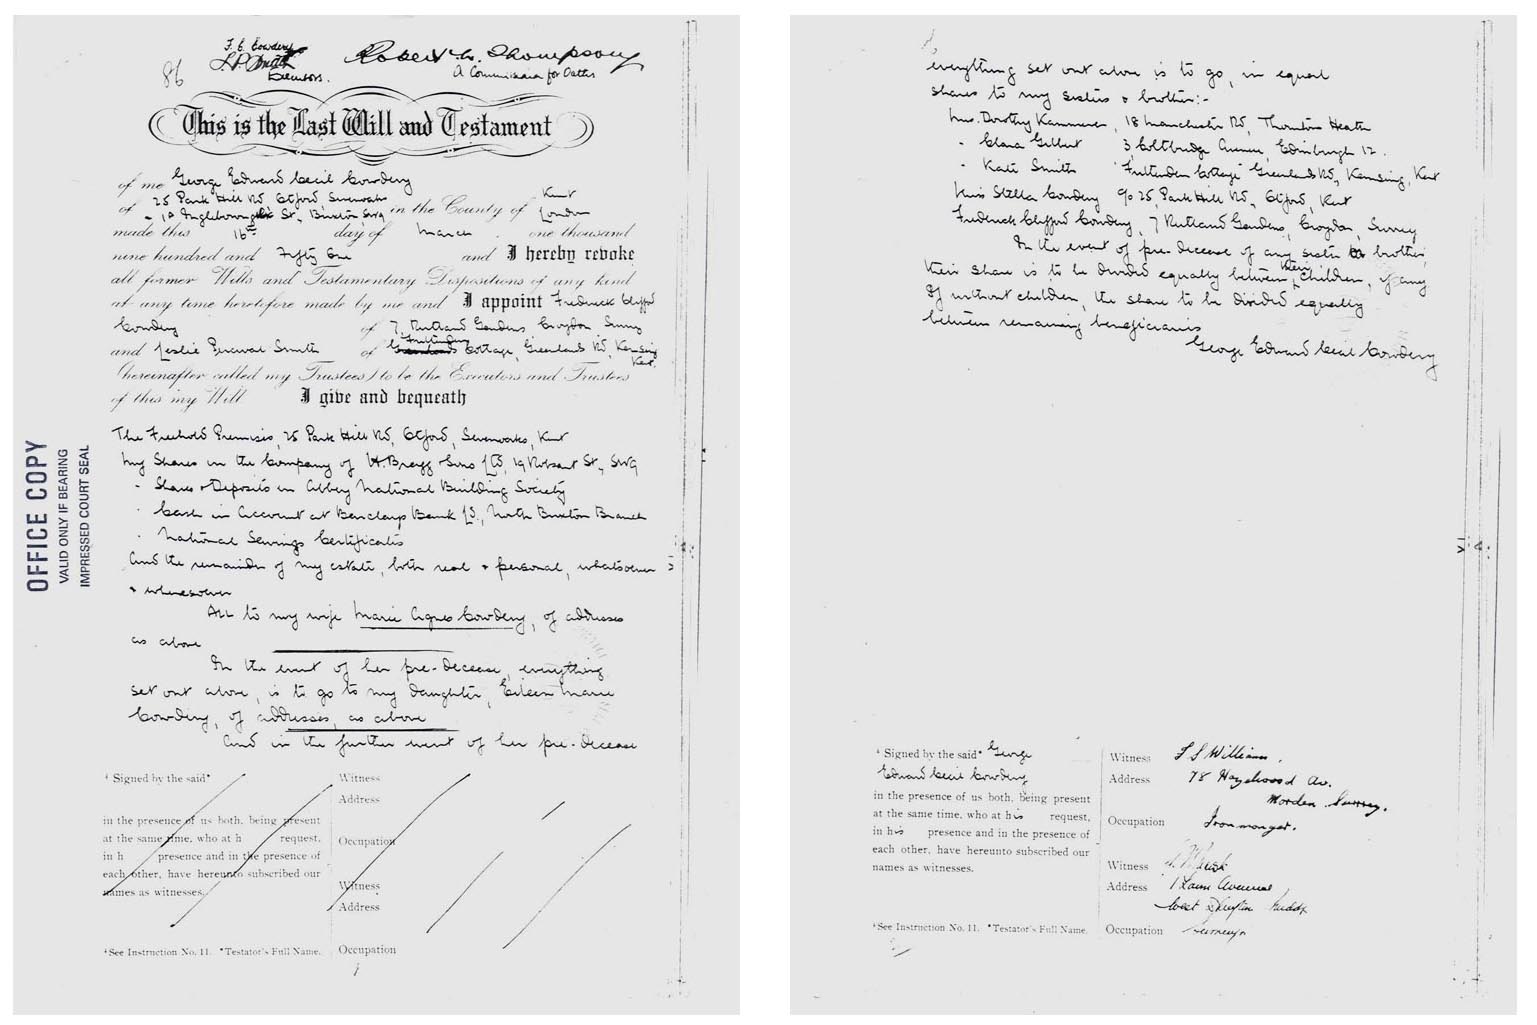 F. C. Cowdery
L.P. Smith
Executors.
Robert G. Thompson
A Commissioner for Oaths
86
This is the Last Will and Testament
of me George Edward Cecil Cowdery
of 25 Park Hill Rd, Otford, Sevenoaks
in the County of Kent
St., Brixton SW9 London
made this 16th day of March one thousand
nine hundred and Fifty One and I hereby revoke
all former Wills and Testamentary Dispositions of any kind
at any time heretofore made by me and I appoint Frederick Clifford
Cowdery of 7, Rutland Gardens Croydon Surrey
and Leslie Percival Smith of Cottage, Greenlands Rd, Kemsing
Kent.
(hereinafter called my Trustees) to be the Executors and Trustees
of this my Will I give and bequeath
The Freehold Premises, 25 Park Hill Rd, Otford, Sevenoaks, Kent
My Shares in the Company of H. Bragg & Sons Ltd, 19 Robsart St., SW9
" Shares & Deposits in Abbey National Building Society
" Cash in Account at Barclays Bank Ld., North Brixton Branch
" National Savings Certificates
And the remainder of my estate, both real & personal, whatsoever
& wheresoever
All to my wife Marie Agnes Cowdery, of addresses
as above
In the event of her pre-decease, everything
set out above, is to go to my daughter, Eileen Marie
Cowdery, of addresses, as above
And in the further event of her pre-decease
‡ Signed by the said*
in the presence of us both, being present
at the same time, who at h request,
in h presence and in the presence of
each other, have hereunto subscribed our
names as witnesses.
‡See Instruction No. 11. *Testator's Full Name.
Witness
Address
Occupation
Witness
Address
Occupation
OFFICE COPY
VALID ONLY IF BEARING
IMPRESSED COURT SEAL
everything set out above is to go, in equal
shares to my sisters & brother:-
Mrs. Dorothy Kammerer, 18 Manchester Rd, Thornton Heath
" Clara Gilbert 3 Coltbridge Avenue, Edinburgh 12.
" Kate Smith Cottage Greenlands Rd, Kemsing, Kent
Miss Stella Cowdery c/o 25, Park Hill Rd, Otford, Kent
Frederick Clifford Cowdery, 7 Rutland Gardens, Croydon, Surrey
In the event of pre-decease of any sister or brother,
their share is to be divided equally between their children, if any
If without children, the share to be divided equally
between remaining beneficiaries
George Edward Cecil Cowdery
‡ Signed by the said* George
Edward Cecil Cowdery
in the presence of us both, being present
at the same time, who at his request,
in his presence and in the presence of
each other, have hereunto subscribed our
names as witnesses.
‡See Instruction No. 11. *Testator's Full Name.
Witness Williams.
Address 78 Hazelwood Av.
Morden Surrey.
Occupation Ironmonger.
Witness
Address 1 Avenue
West Drayton Middx
Occupation Surveyor